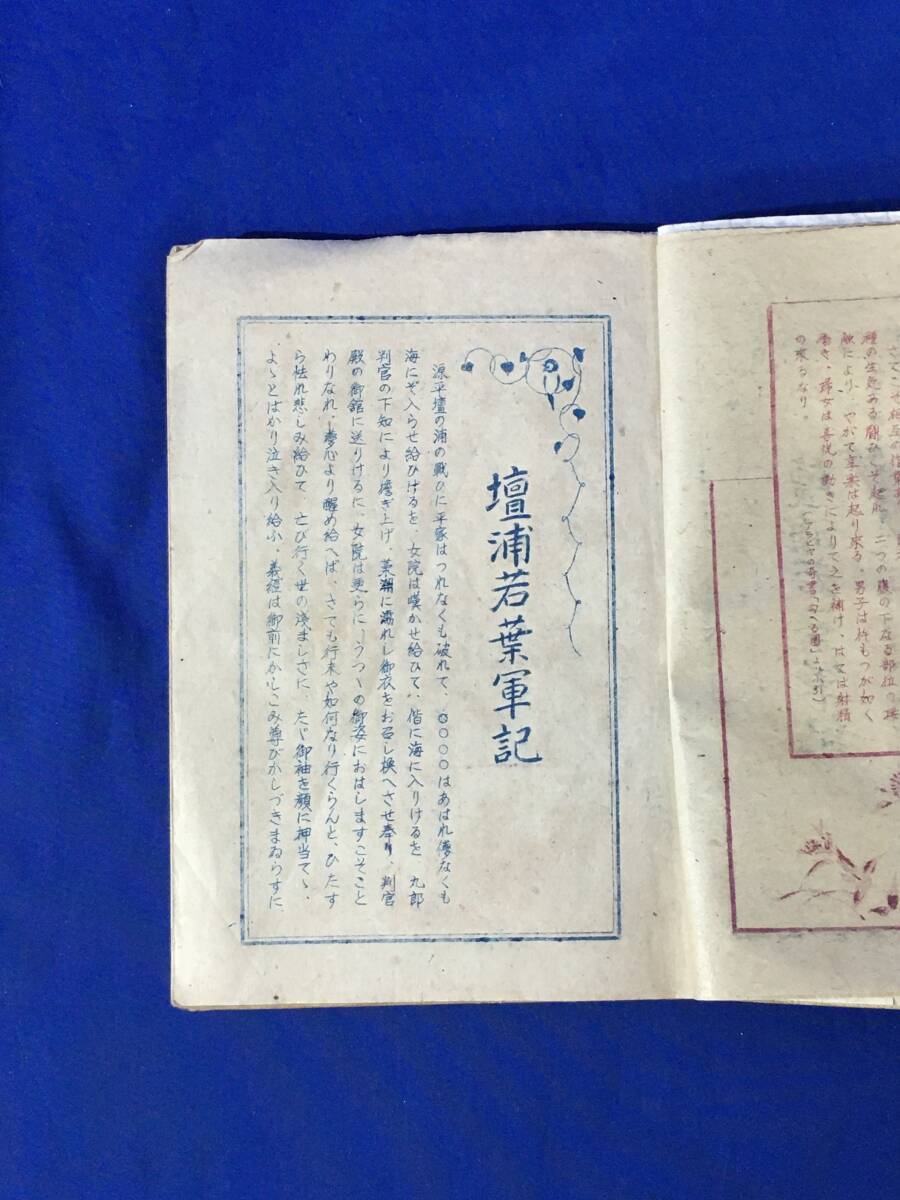 種の生色ある闘ひこそ起れ 二つの腹の下なる部位の
敵により、やがて主楽は起り来る。男子は杵もつが如く
働き、婦女は喜悦の動きによりて之を補け、はては射精
の來るなり。
壇浦若葉軍記
源平壇の浦の戦ひに平家はつれなくも破れて、〇〇〇〇はあはれ儚なくも
海にぞ入らせ給ひけるを、女院は嘆かせ給ひて、偕に海に入りけるを 九郎
判官の下知により擔ぎ上げ、藻潮に濡れし御衣をお召し換へさせ奉り、判官
殿の御舘に送りけるに、女院は更らに―うつゝの御姿におはしますこそこと
わりなれ。―夢心より醒め給へば、さても行末や如何なり行くらんと、ひたす
ら怯れ悲しみ給ひて、亡び行く世の浅ましさに、たゞ御袖を顔に押当てゝ、
よゝとばかり泣き入り給ふ、義經は御前にかしこみ尊びかしづきまゐらすに